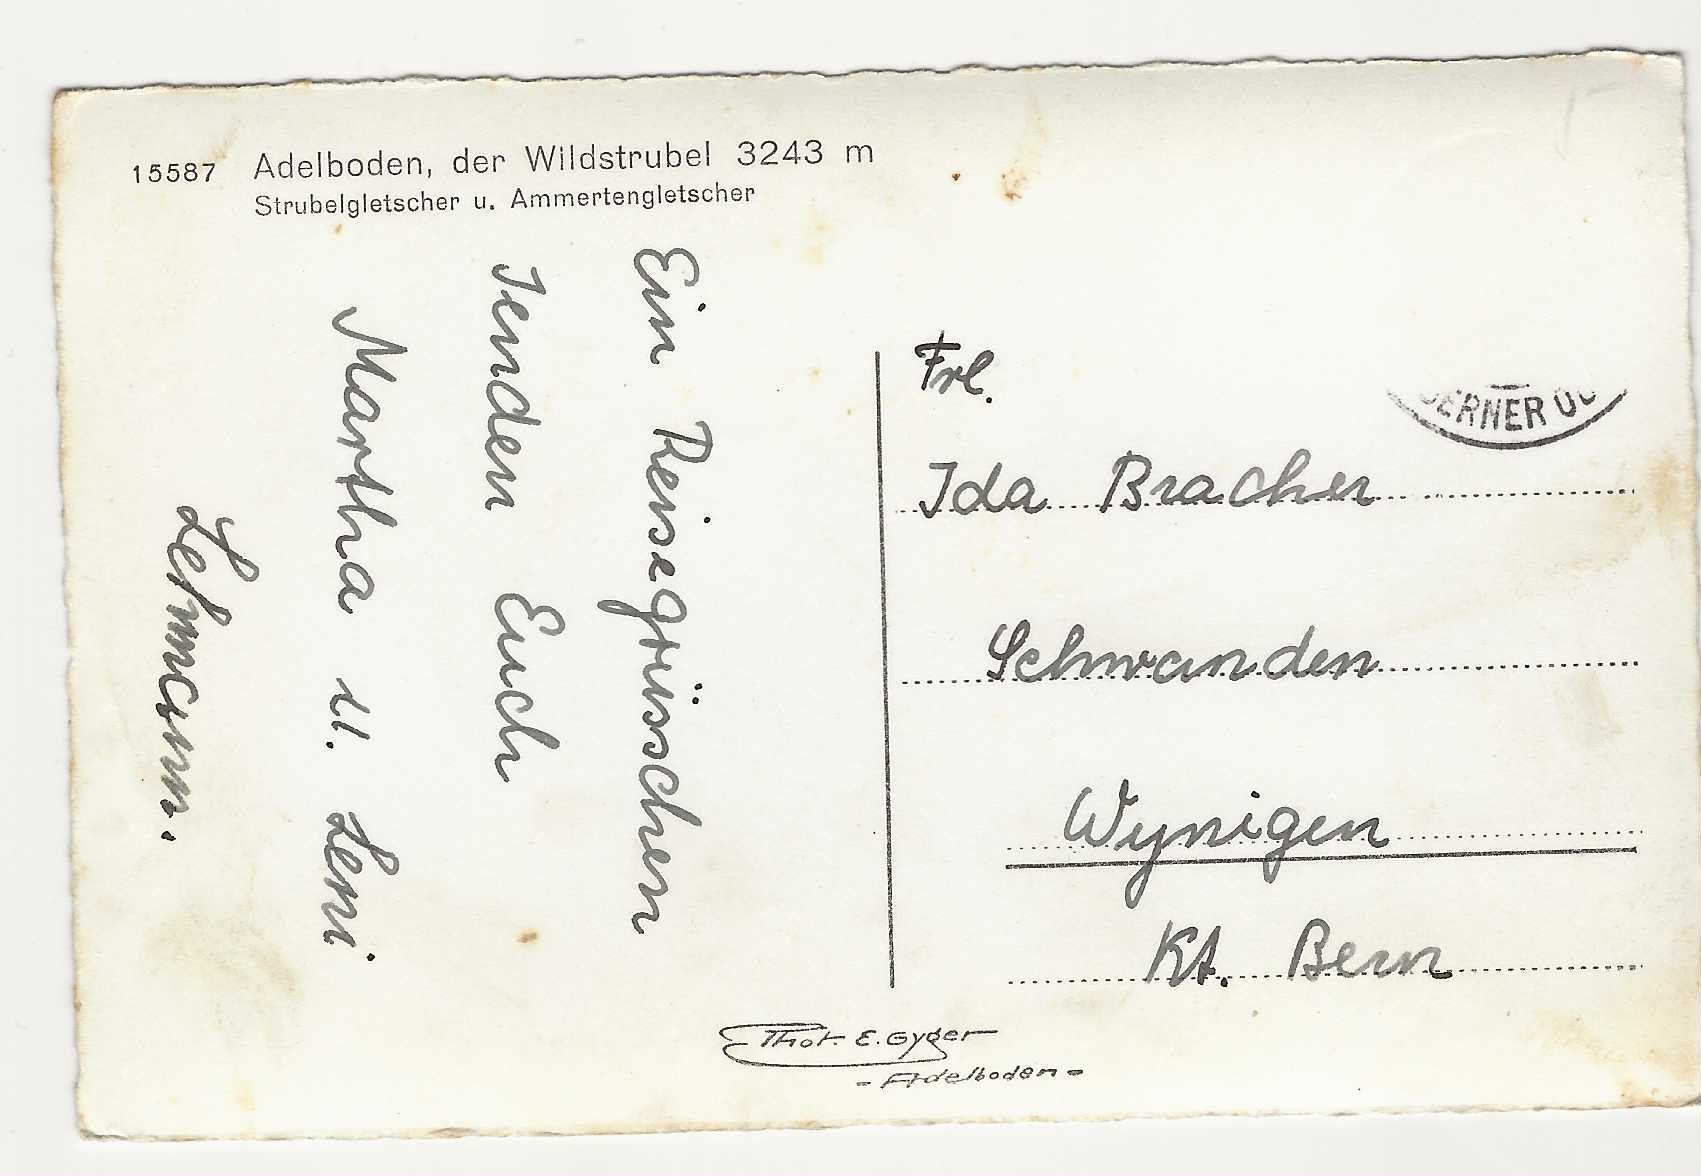 15587 Adelboden, der Wildstrubel 3243 m
Strubelgletscher u. Ammertengletscher
Ein Reisegrüsschen
senden Euch
Martha u. Leni
Lehmann.
Frl.
Ida Bracher
Schwanden
Wynigen
Kt. Bern
BERNER
Phot. E. Gyger
- Adelboden -